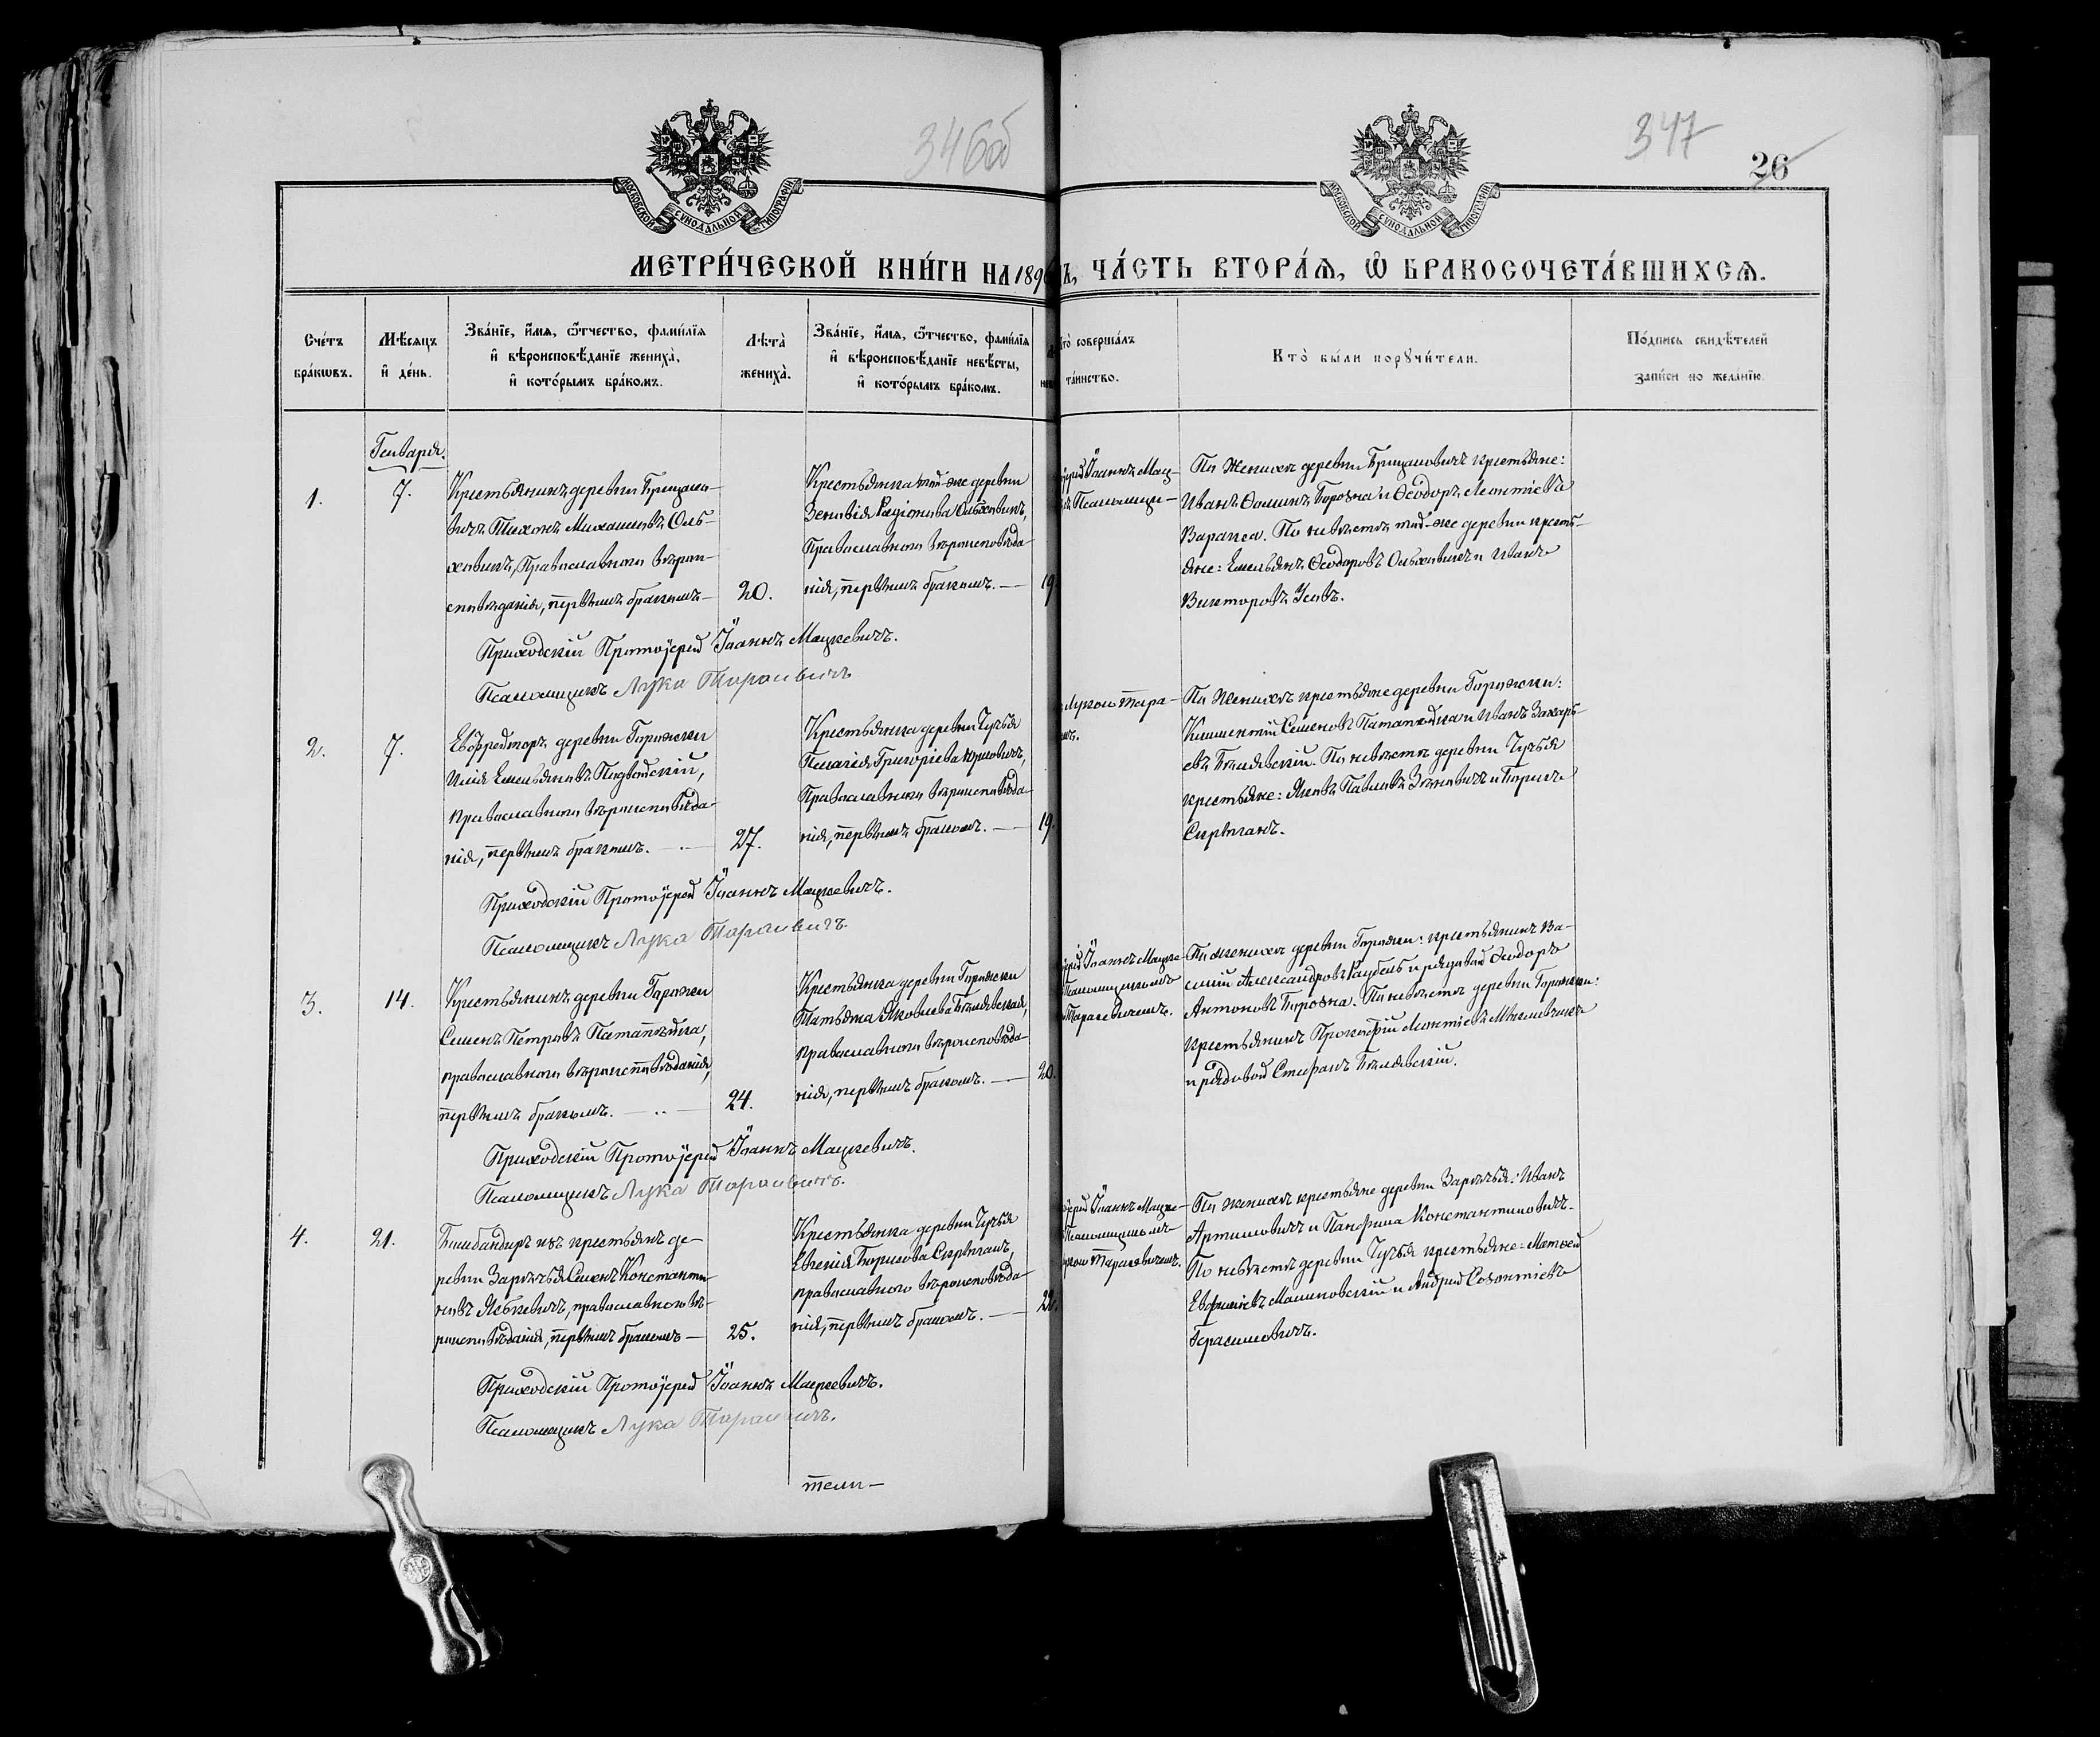 346об
347
26
МОСКОВСКОЙ СѴНОДАЛЬНОЙ ТИПОГРАФІИ
МОСКОВСКОЙ СѴНОДАЛЬНОЙ ТИПОГРАФІИ
МЕТРИ́ЧЕСКОЙ КНИ́ГИ НА 189
Ъ, ЧА́СТЬ ВТОРА́Ѧ, Ѽ БРАКОСОЧЕТА́ВШИХСѦ.
Сче́тъ
бра́кѡвъ.
Мѣ́сѧцъ
и҆ де́нь.
Зва́нїе, и҆́мѧ, ѻ҆́тчество, фами́лїѧ
и҆ вѣроисповѣ́данїе жениха̀,
и҆ кото́рымъ бра́комъ.
Лѣ́та̀
жениха̀.
Зва́нїе, и҆́мѧ, ѻ҆́тчество, фами́лїѧ
и҆ вѣроисповѣ́данїе невѣ́сты,
и҆ кото́рымъ бра́комъ.
то̀ соверша́лъ
та́инство.
Кто̀ бы́ли порꙋчи́тели.
По́дпись свидѣ́телей
за́писи по жела́нїю.
Генваря.
1.
7.
Крестьянинъ деревни
Тихонъ Михаиловъ Оль-
ховикъ, Православнаго вѣрои-
сповѣданія, первымъ бракомъ —
20.
Крестьянка той-же деревни
Зеновія Радіонова Ольховикъ,
Православнаго вѣроисповѣда
нія, первымъ бракомъ. —
19
Іоаннъ Мац-
Псаломщи-
По Женихѣ деревни крестьяне:
Иванъ Ѳоминъ и Ѳеодоръ Леонтіевъ
По невѣстѣ той-же деревни кресть-
яне: Емельянъ Ѳеодоровъ Ольховикъ и Иванъ
Викторовъ Усовъ.
Приходскій Протоіерей Іоаннъ Мацкевичъ.
Псаломщикъ Лука Тарасевичъ
2.
7.
Ефрейторъ деревни Горожки
Илія Емельяновъ
православнаго вѣроисповѣда
нія, первымъ бракомъ. —
27.
Крестьянка деревни Чучья
Пелагія Григоріева
Православнаго вѣроисповѣда-
нія, первымъ бракомъ. —
19.
Лукою Тара-
По Женихѣ крестьяне деревни Горожки:
Семеновъ Потапейка и Иванъ Захарь-
евъ Бѣлявскій. По невѣстѣ деревни Чучья
крестьяне: Яковъ Павловъ и Борисъ
Скрыганъ.
Приходскій Протоіерей Іоаннъ Мацкевичъ.
Псаломщикъ Лука Тарасевичъ.
3.
14.
Крестьянинъ деревни Горожки
Семенъ Петровъ Потапейка,
православнаго вѣроисповѣданія,
первымъ бракомъ. —
24.
Крестьянка деревни Горожки
Татьяна Яковлева Бѣлявская,
православнаго вѣроисповѣда-
нія, первымъ бракомъ. —
20.
Іоаннъ Мацке-
Псаломщикомъ
Тарасевичемъ.
По женихѣ деревни Горожки: крестьянинъ Ва-
силій Александровъ и рядовой Ѳеодоръ
Антоновъ. По невѣстѣ деревни Горожки:
крестьянинъ Прокофій Леонтіевъ
и рядовой Стефанъ Бѣлявскій.
Приходскій Протоіерей Іоаннъ Мацкевичъ.
Псаломщикъ Лука Тарасевичъ.
4.
21.
Бомбандиръ изъ крестьянъ де-
ревни Зарѣчья Семенъ Константи
новъ православнаго вѣ-
роисповѣданія, первымъ бракомъ —
25.
Крестьянка деревни Чучья
Евгенія Борисова Скрыганъ,
православнаго вѣроисповѣда
нія, первымъ бракомъ. —
22.
Іоаннъ Мацке-
Псаломщикомъ
Тарасевичемъ.
По женихѣ крестьяне деревни Зарѣчья: Иванъ
и Константиновичъ.
По невѣстѣ деревни Чучья крестьяне: Матвей
Евфиміевъ Малиновскій и Андрей Созонтіевъ
Герасимовичъ.
Приходскій Протоіерей Іоаннъ Мацкевичъ.
Псаломщикъ Лука Тарасевичъ.